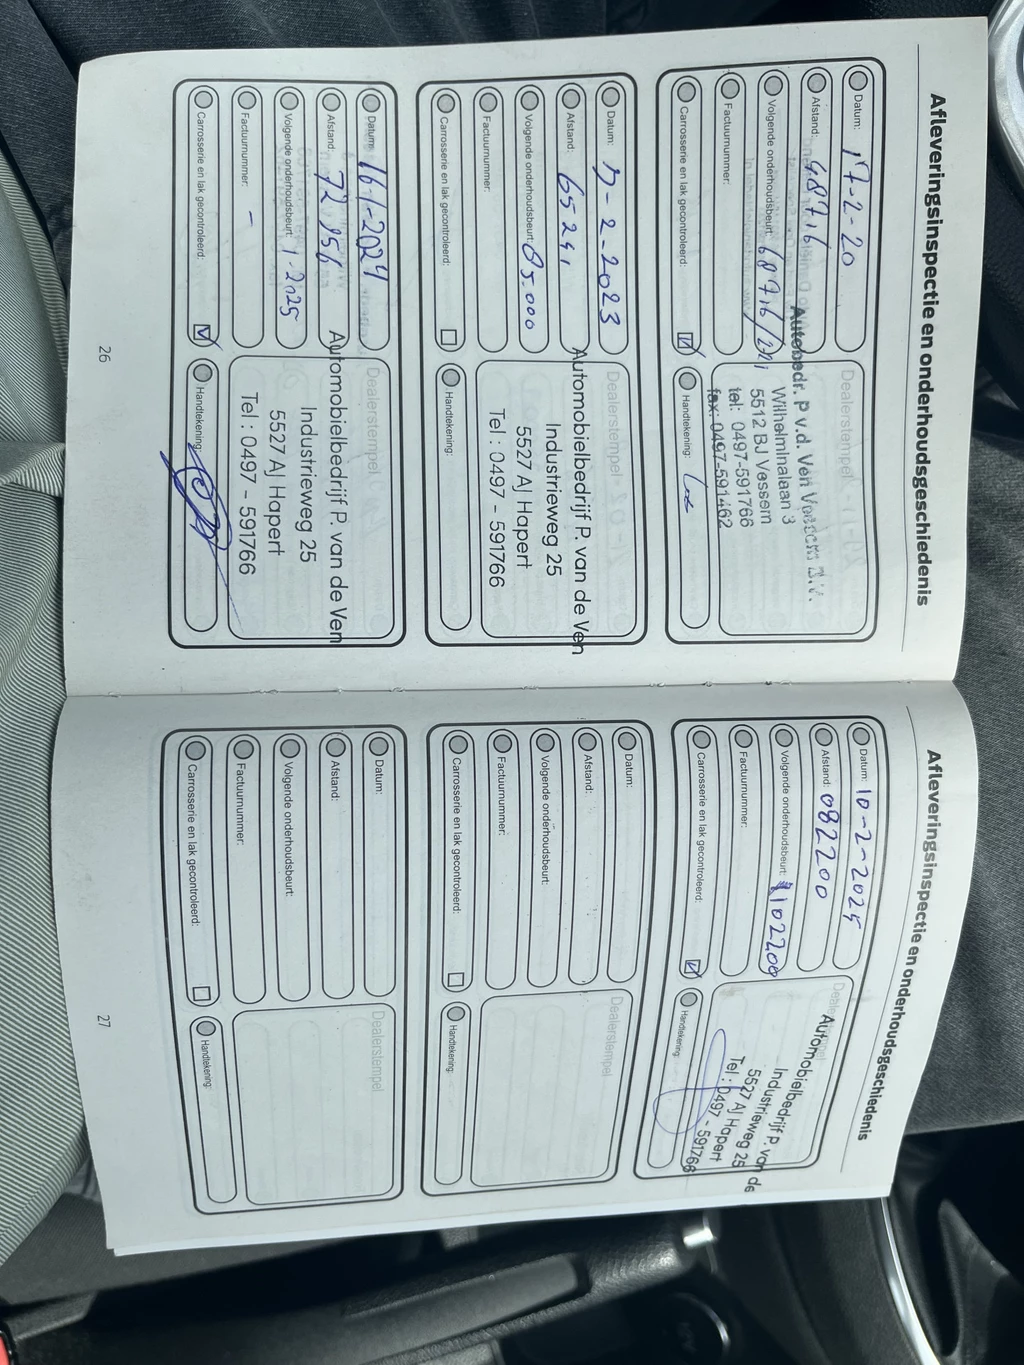 Afleveringsinspectie en onderhoudsgeschiedenis
Datum: 17-2-20
Afstand: 48716
Volgende onderhoudsbeurt: 68716/
Factuurnummer:
Carrosserie en lak gecontroleerd:
Dealerstempel
Autobedr. P v.d. Ven Vessem B.V.
Wilhelminalaan 3
5512 BJ Vessem
tel: 0497-591766
fax: 0497-591462
Handtekening:
Datum: 7-2-2023
Afstand: 65241
Volgende onderhoudsbeurt: 85.000
Factuurnummer:
Carrosserie en lak gecontroleerd:
Dealerstempel
Automobielbedrijf P. van de Ven
Industrieweg 25
5527 AJ Hapert
Tel : 0497 - 591766
Handtekening:
Datum: 16-1-2024
Afstand: 72 956
Volgende onderhoudsbeurt: 1-2025
Factuurnummer: -
Carrosserie en lak gecontroleerd:
Dealerstempel
Automobielbedrijf P. van de Ven
Industrieweg 25
5527 AJ Hapert
Tel : 0497 - 591766
Handtekening:
26
Afleveringsinspectie en onderhoudsgeschiedenis
Datum: 10-2-2025
Afstand: 082200
Volgende onderhoudsbeurt: 102200
Factuurnummer:
Carrosserie en lak gecontroleerd:
Dealerstempel
Automobielbedrijf P. van de
Industrieweg 25
5527 AJ Hapert
Tel : 0497 - 591766
Handtekening:
Datum:
Afstand:
Volgende onderhoudsbeurt:
Factuurnummer:
Carrosserie en lak gecontroleerd:
Dealerstempel
Handtekening:
Datum:
Afstand:
Volgende onderhoudsbeurt:
Factuurnummer:
Carrosserie en lak gecontroleerd:
Dealerstempel
Handtekening:
27